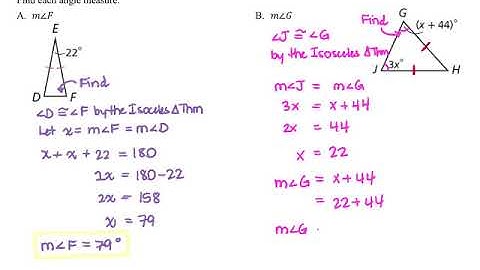 Find each angle measure.
A. m∠F
E
22°
Find
D F
∠D ≅ ∠F by the Isoceles Δ Thm
Let x = m∠F = m∠D
x + x + 22 = 180
2x = 180 - 22
2x = 158
x = 79
m∠F = 79°
B. m∠G
∠J ≅ ∠G
by the Isosceles Δ Thm
Find
G
(x + 44)°
J 3x° H
m∠J = m∠G
3x = x + 44
2x = 44
x = 22
m∠G = x + 44
= 22 + 44
m∠G .